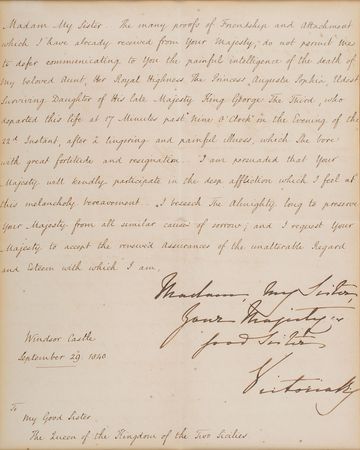 Madam My Sister. The many proofs of Friendship and Attachment
which I have already received from Your Majesty, do not permit me
to defer communicating to You the painful intelligence of the death of
my beloved Aunt, Her Royal Highness The Princess Augusta Sophia, Eldest
Surviving Daughter of His late Majesty King George The Third, who
departed this life at 17 Minutes past Nine O'Clock in the Evening of the
22d Instant, after a lingering and painful illness, which She bore
with great fortitude and resignation. I am persuaded that Your
Majesty will kindly participate in the deep affliction which I feel at
this melancholy bereavement. I beseech The Almighty long to preserve
Your Majesty from all similar causes of sorrow; and I request Your
Majesty to accept the renewed Assurances of the unalterable Regard
and Esteem with which I am,
Madam, My Sister,
Your Majesty's
good Sister
Victoria R
Windsor Castle
September 29 1840
To
My Good Sister
The Queen of the Kingdom of the Two Sicilies